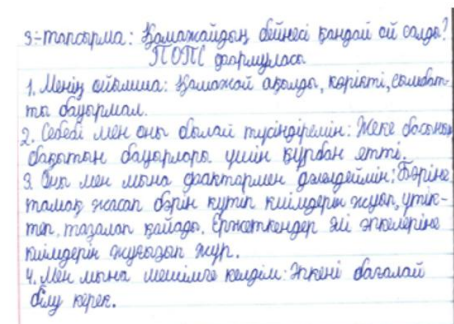 3-тапсырма: Қамажайдың бейнесі қандай ой салды?
ПОПС формуласы
1. Менің ойымша: Қамажай ақылды, көрікті, сымбат-
ты бауырмал.
2. Себебі мен оны былай түсіндіремін: Жеке басының
бақытын бауырлары үшін құрбан етті.
3. Оны мен мына фактормен дәлелдеймін: Бәріне
тамақ жасап бәрін күтіп киімдерін жуып, үтік-
теп, тазалап қайтады. Ержеткендер әлі әпкелеріне
киімдерін жуғызып жүр.
4. Мен мына шешімге келдім: Әпкені бағалай
білу керек.